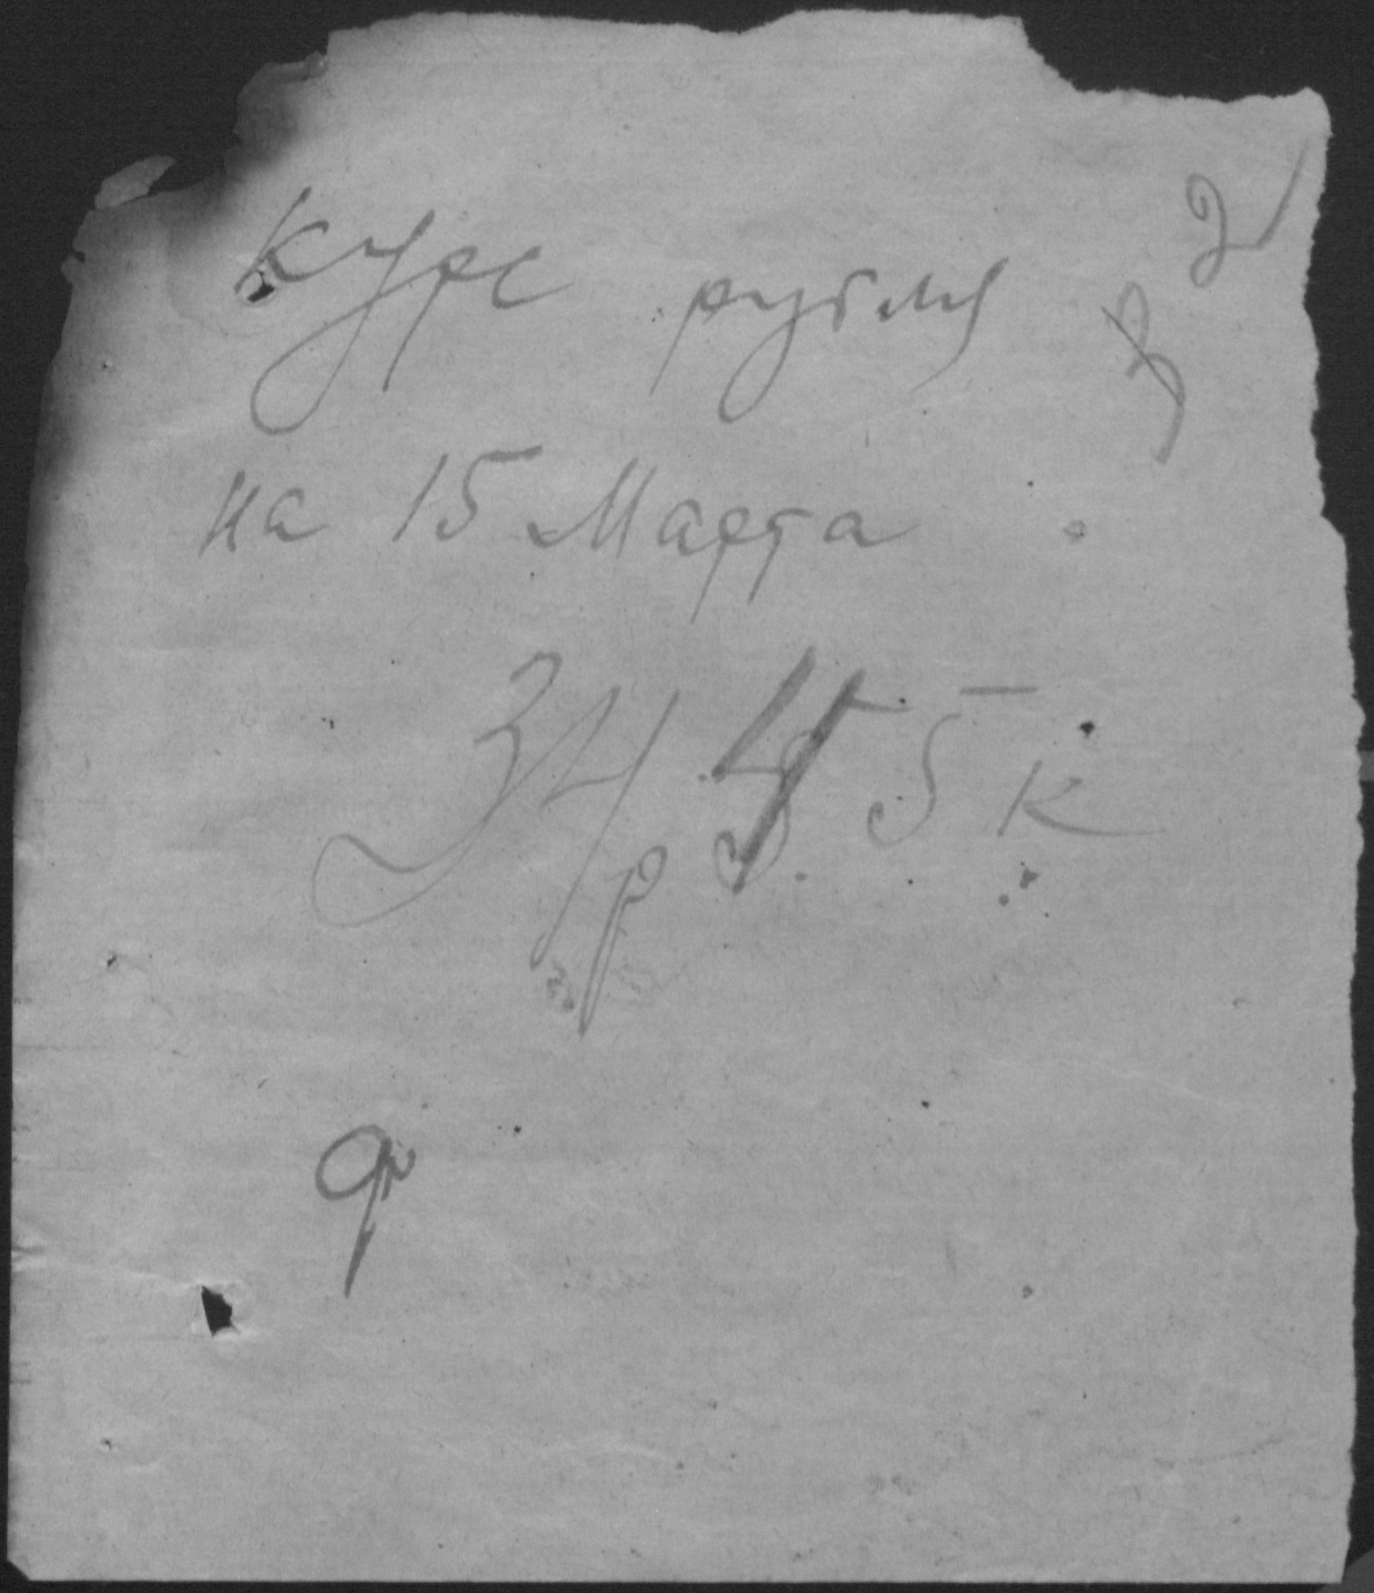 Курс рубля
на 15 Марта
34р 45к